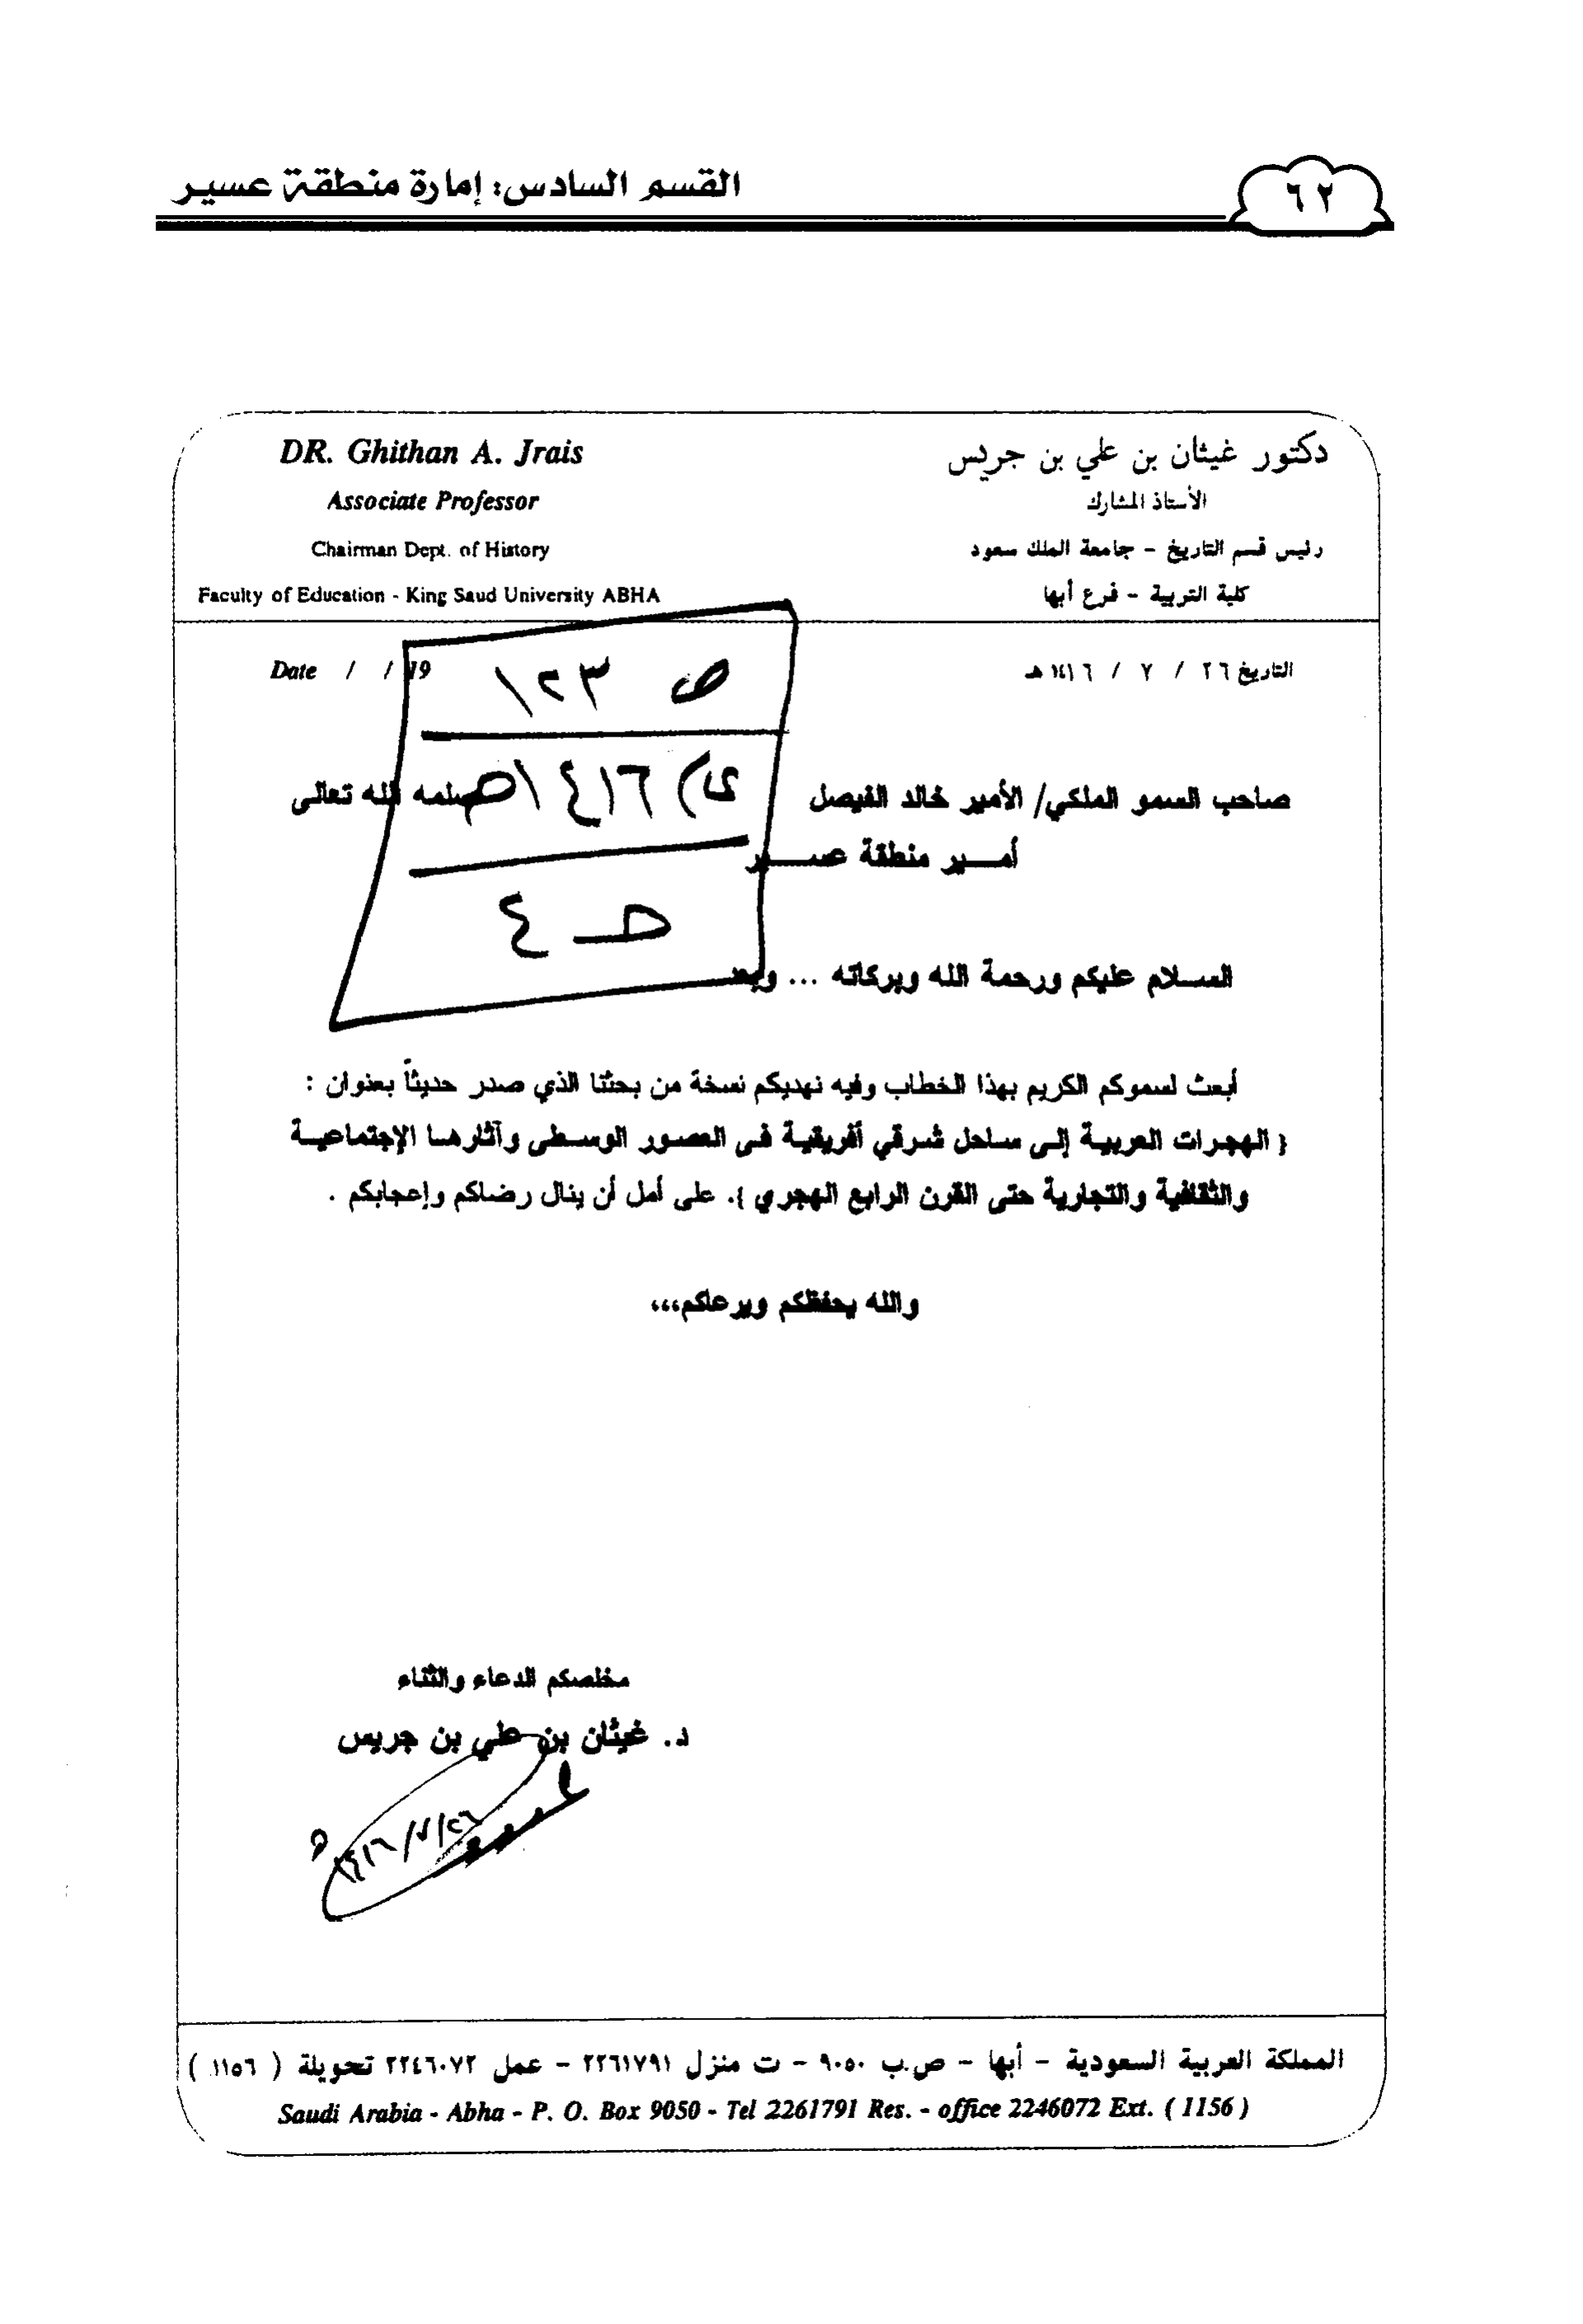 القسم السادس: إمارة منطقة عسير
٦٢
DR. Ghithan A. Jrais
Associate Professor
Chairman Dept. of History
Faculty of Education - King Saud University ABHA
دكتور غيثان بن علي بن جريس
الأستاذ المشارك
رئيس قسم التاريخ - جامعة الملك سعود
كلية التربية - فرع أبها
التاريخ ٢٦ / ٧ / ١٤١٦ هـ
Date / / 19
ص ١٢٣
١٤١٦هـ
حـ ٤
صاحب السمو الملكي/ الأمير خالد الفيصل سلمه الله تعالى
أمـــير منطقة عســــير
الســلام عليكم ورحمة الله وبركاته ... وبعد
أبعث لسموكم الكريم بهذا الخطاب وفيه نهديكم نسخة من بحثنا الذي صدر حديثاً بعنوان :
{ الهجرات العربيـة إلـى سـاحل شـرقي أفريقيـة فـى العصـور الوسـطى وآثارهـا الإجتماعيـة
والثقافية والتجارية حتى القرن الرابع الهجري }. على أمل أن ينال رضاكم وإعجابكم .
والله يحفظكم ويرعاكم،،،
مخلصكم الدعاء والثناء
د. غيثان بن علي بن جريس
١٤١٦/٧/٢٦ هـ
المملكة العربية السعودية - أبها - ص.ب ٩٠٥٠ - ت منزل ٢٢٦١٧٩١ - عمل ٢٢٤٦٠٧٢ تحويلة ( ١١٥٦ )
Saudi Arabia - Abha - P. O. Box 9050 - Tel 2261791 Res. - office 2246072 Ext. ( 1156 )